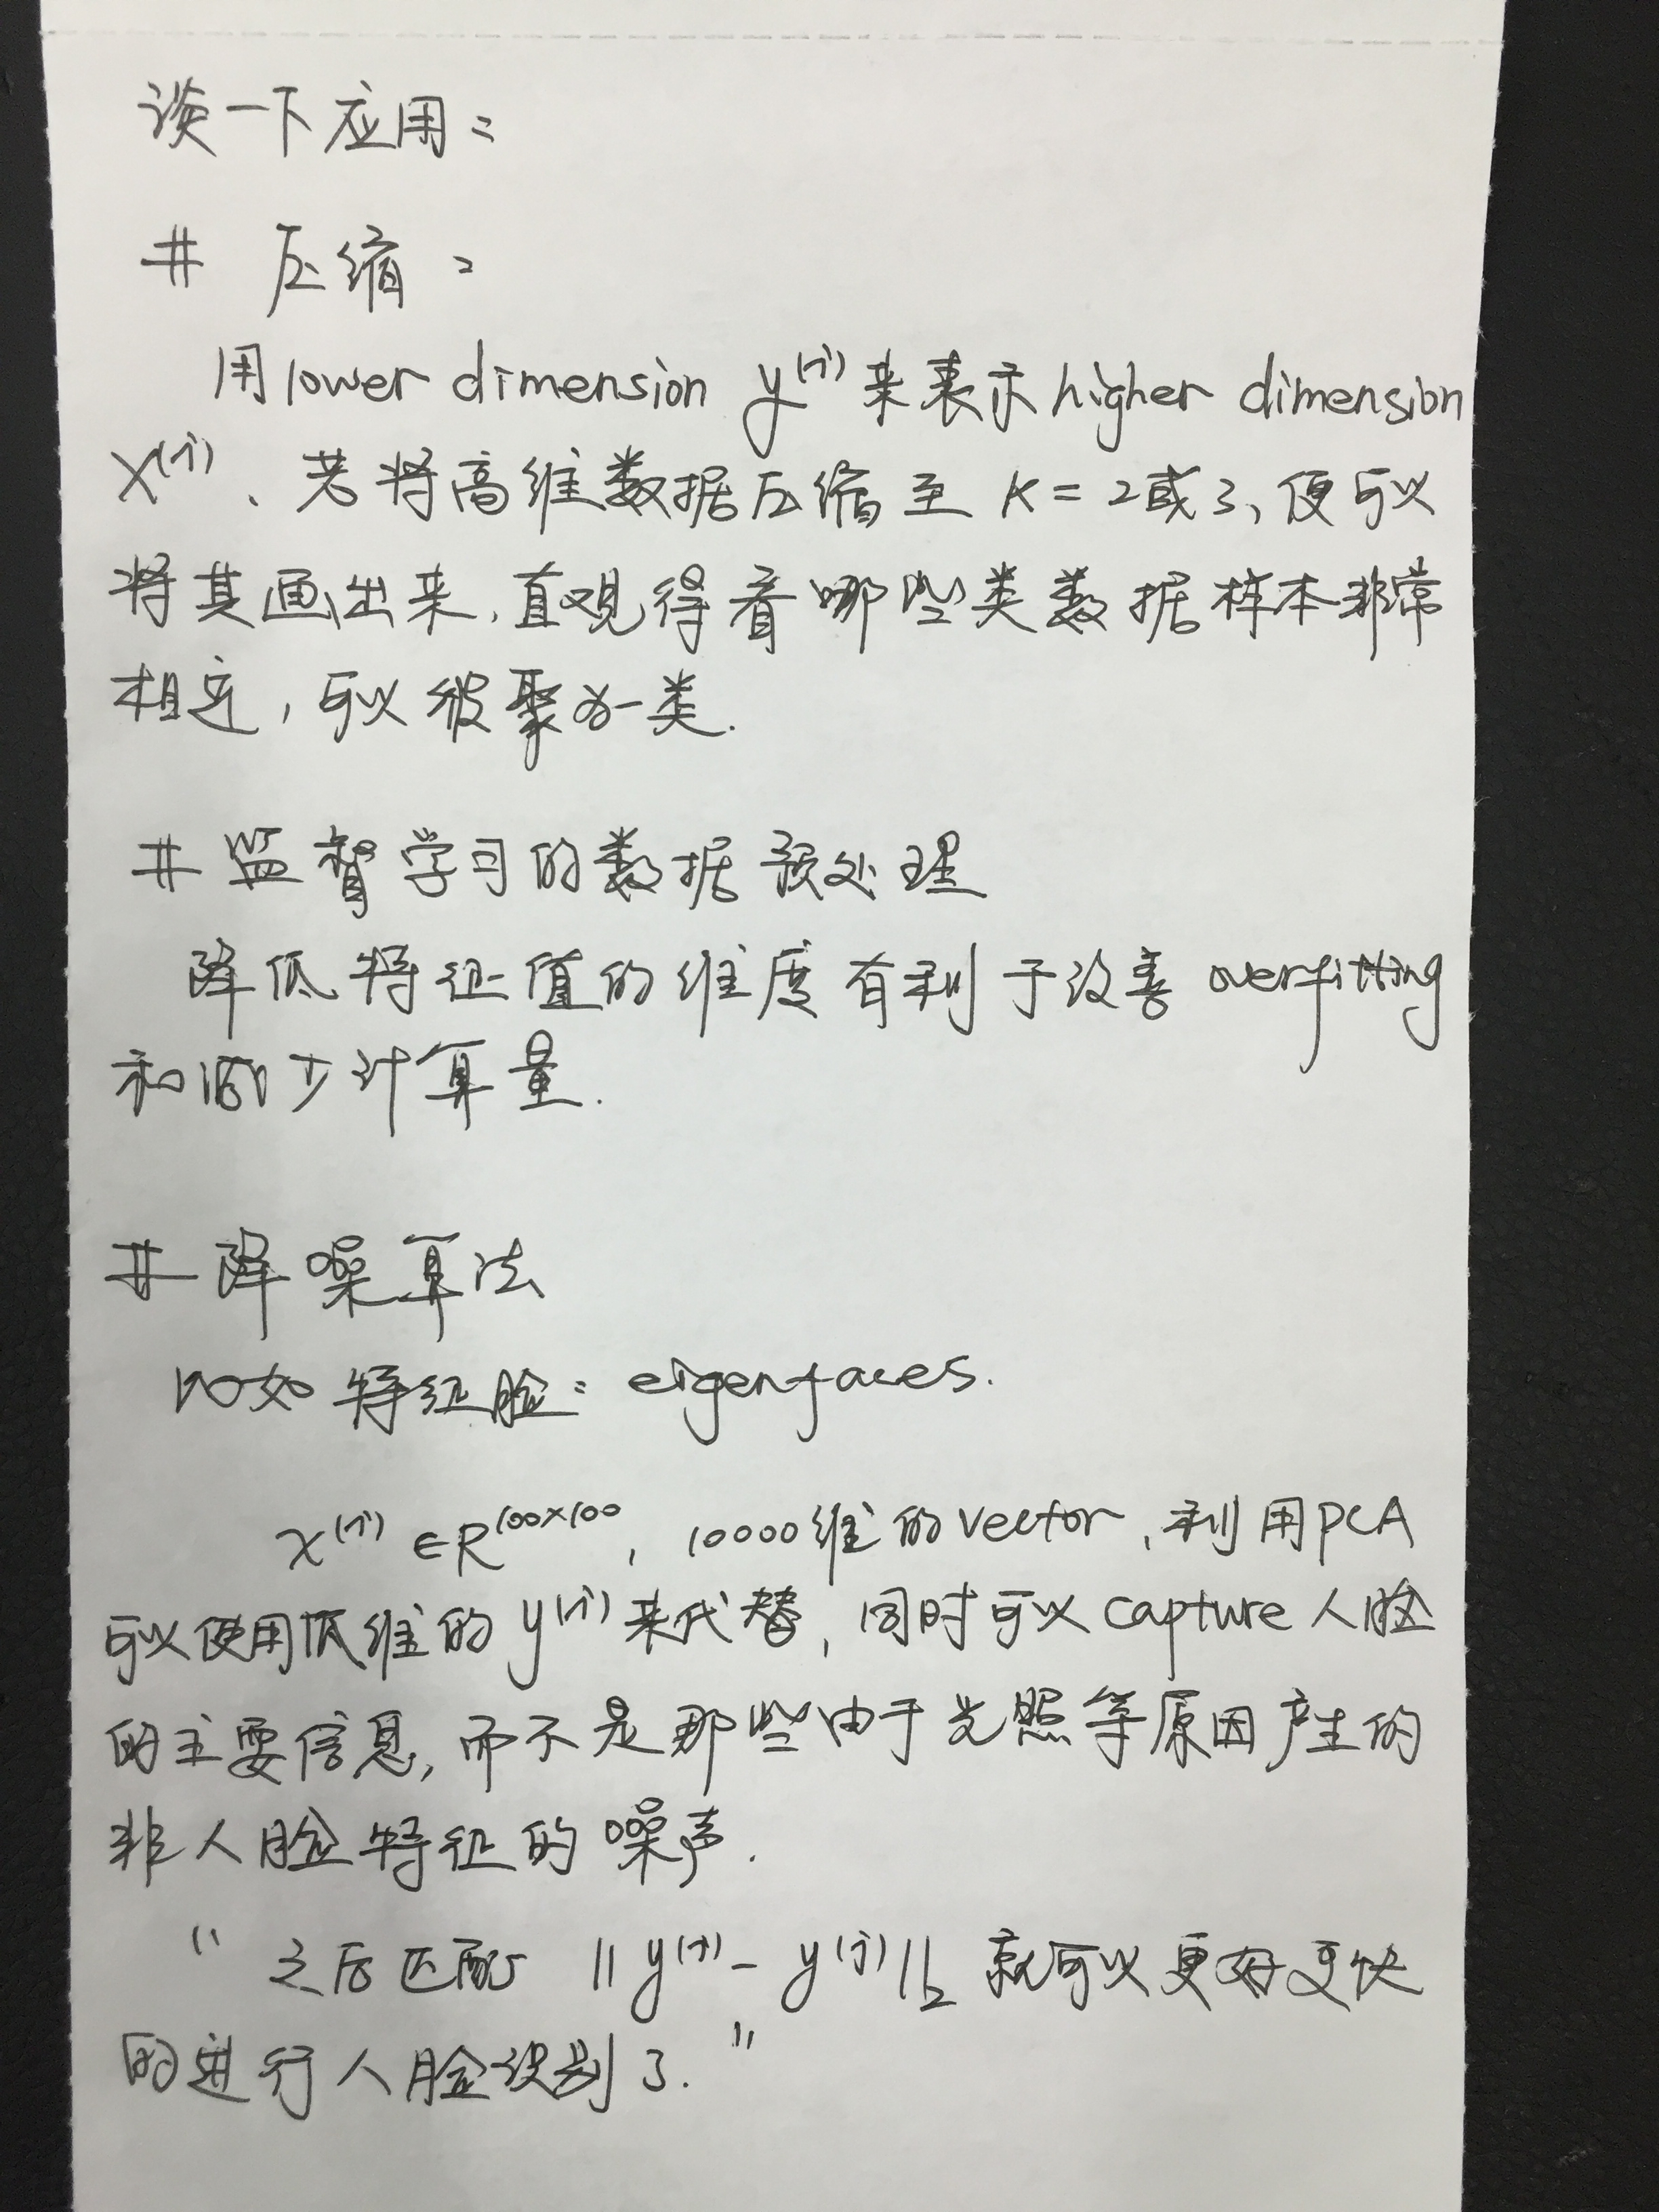 谈一下应用：
# 压缩：
用lower dimension y⁽ⁱ⁾来表示higher dimension
x⁽ⁱ⁾、若将高维数据压缩至 K=2或3、便可以
将其画出来,直观得看哪些类数据样本非常
相近,可以被聚为一类.
# 监督学习的数据预处理
降低特征值的维度有利于改善 overfitting
和减少计算量.
# 降噪算法
比如 特征脸：eigenfaces.
x⁽ⁱ⁾∈R¹⁰⁰ˣ¹⁰⁰, 10000维的vector,利用PCA
可以使用低维的y⁽ⁱ⁾来代替,同时可以capture人脸
的主要信息,而不是那些由于光照等原因产生的
非人脸特征的噪声.
“之后匹配 ||y⁽ⁱ⁾- y⁽ʲ⁾||₂ 就可以更好更快
的进行人脸识别了.”